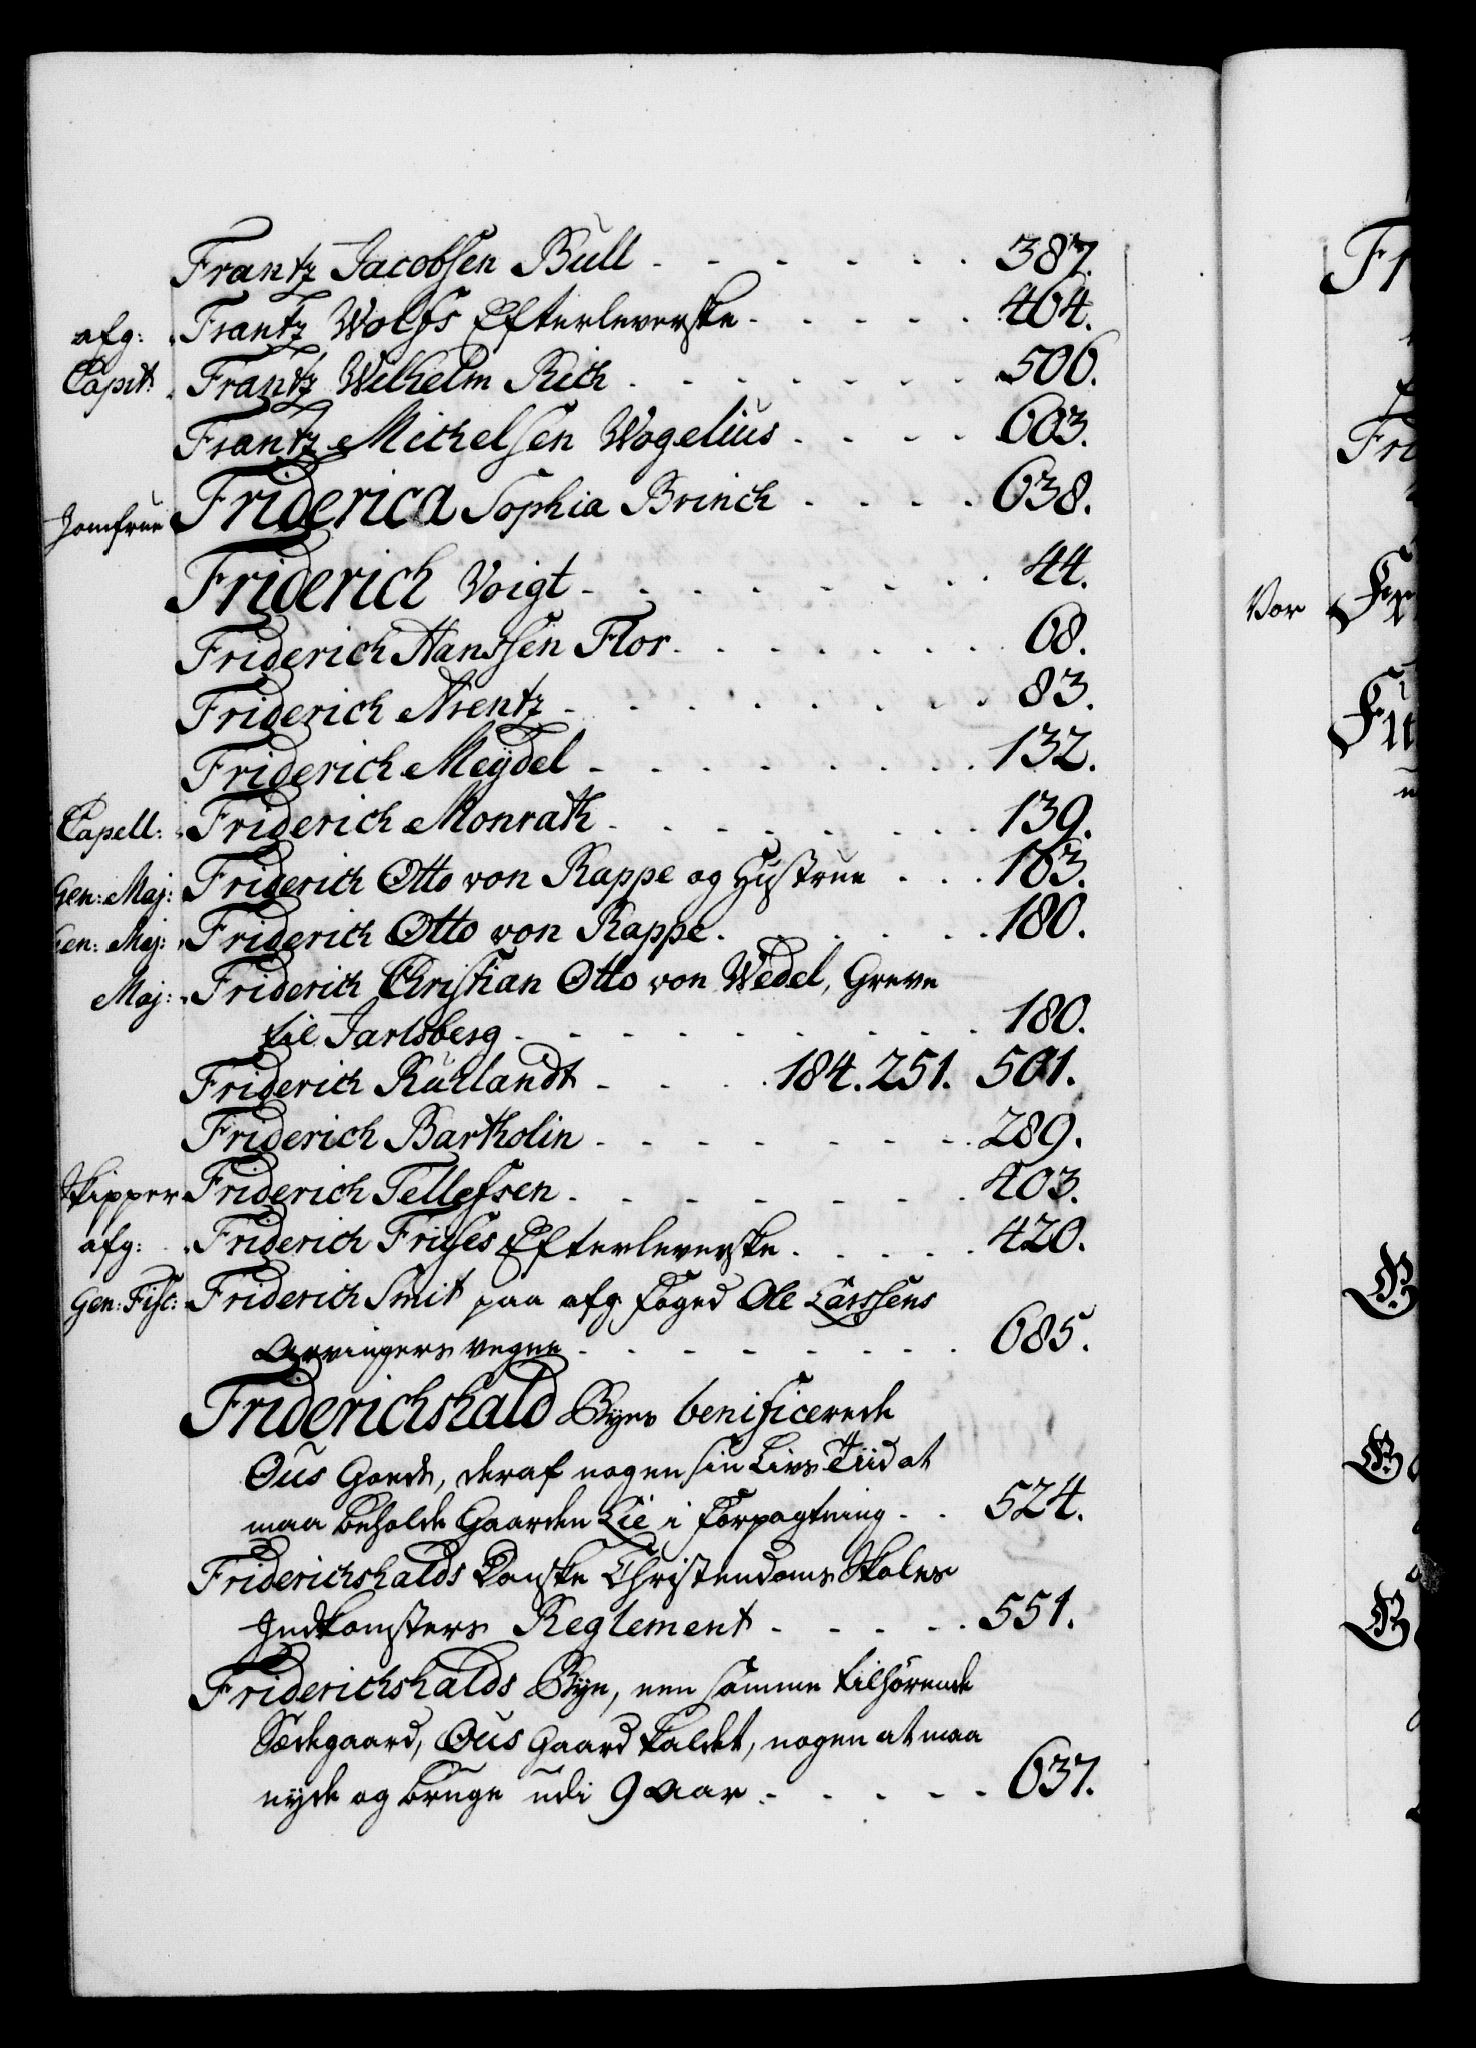 Frantz Jacobsen Bull - - - - - - 387.
afg: Frantz Wolfs Efterleverske - - - - - 404.
Capit: Frantz Wilhelm Rich - - - - - - 506.
Frantz Michelsen Wogelius - - - - 603.
Jomfrue Friderica Sophia Brinch - - - - 638.
Friderich Voigt - - - - - - - - 44.
Friderich Hanssen Flor - - - - - - - 68.
Friderich Arentz - - - - - - - - 83.
Friderich Meydel - - - - - - - - 132.
Capell: Friderich Monrath - - - - - - - 139.
Gen: Maj: Friderich Otto von Rappe og Hustrue - - - 163.
Gen: Maj: Friderich Otto von Rappe - - - - - 180.
Maj: Friderich Christian Otto von Wedel, Greve
til Jarlsberg - - - - - - - - - 180.
Friderich Rühlandt - - - - 184. 251. 501.
Friderich Bartholin - - - - - - - 289.
Skipper Friderich Tellefsen - - - - - - - 403.
afg: Friderich Frises Efterleverske - - - - 420.
Gen: Fisc: Friderich Smit paa afg Foged Ole Larssens
Arvingers vegne - - - - - - - 685.
Friderichshald Byes benificerede
Ous Goeds, deraf nogen sin Livs Tiid at
maa beholde Gaarden Lie i Forpagtning - - 524.
Friderichshalds Danske Christendoms Skoles
Indkomsters Reglement - - - - - 551.
Friderichshalds Bye, een samme tilhørende
Sædegaard, Ous Gaard kaldet, nogen at maa
nyde og bruge udi 9 Aar - - - - - 637.
Vor